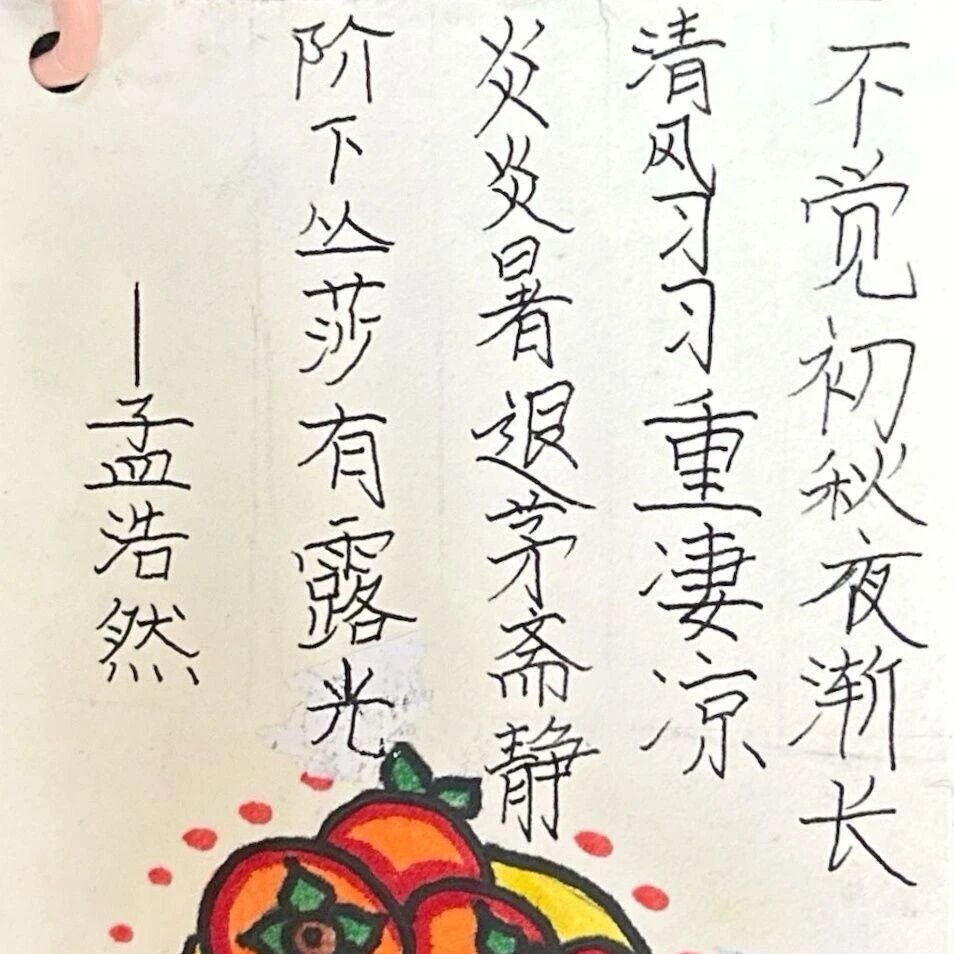 不觉初秋夜渐长
清风习习重凄凉
炎炎暑退茅斋静
阶下丛莎有露光
—孟浩然